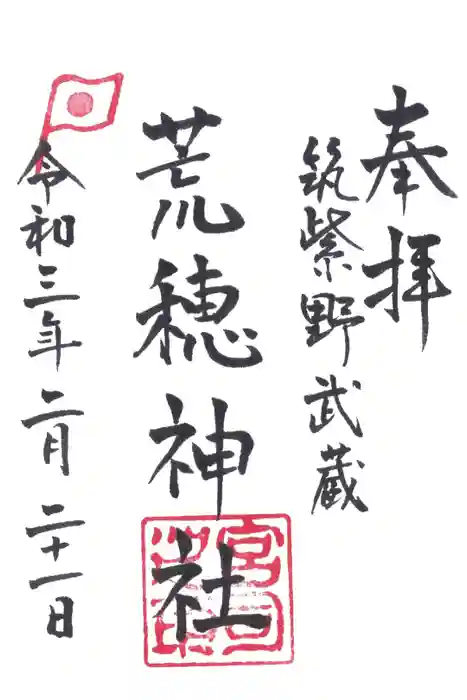 奉拝
筑紫野武蔵
荒穂神社
宮司之印
令和三年二月二十一日